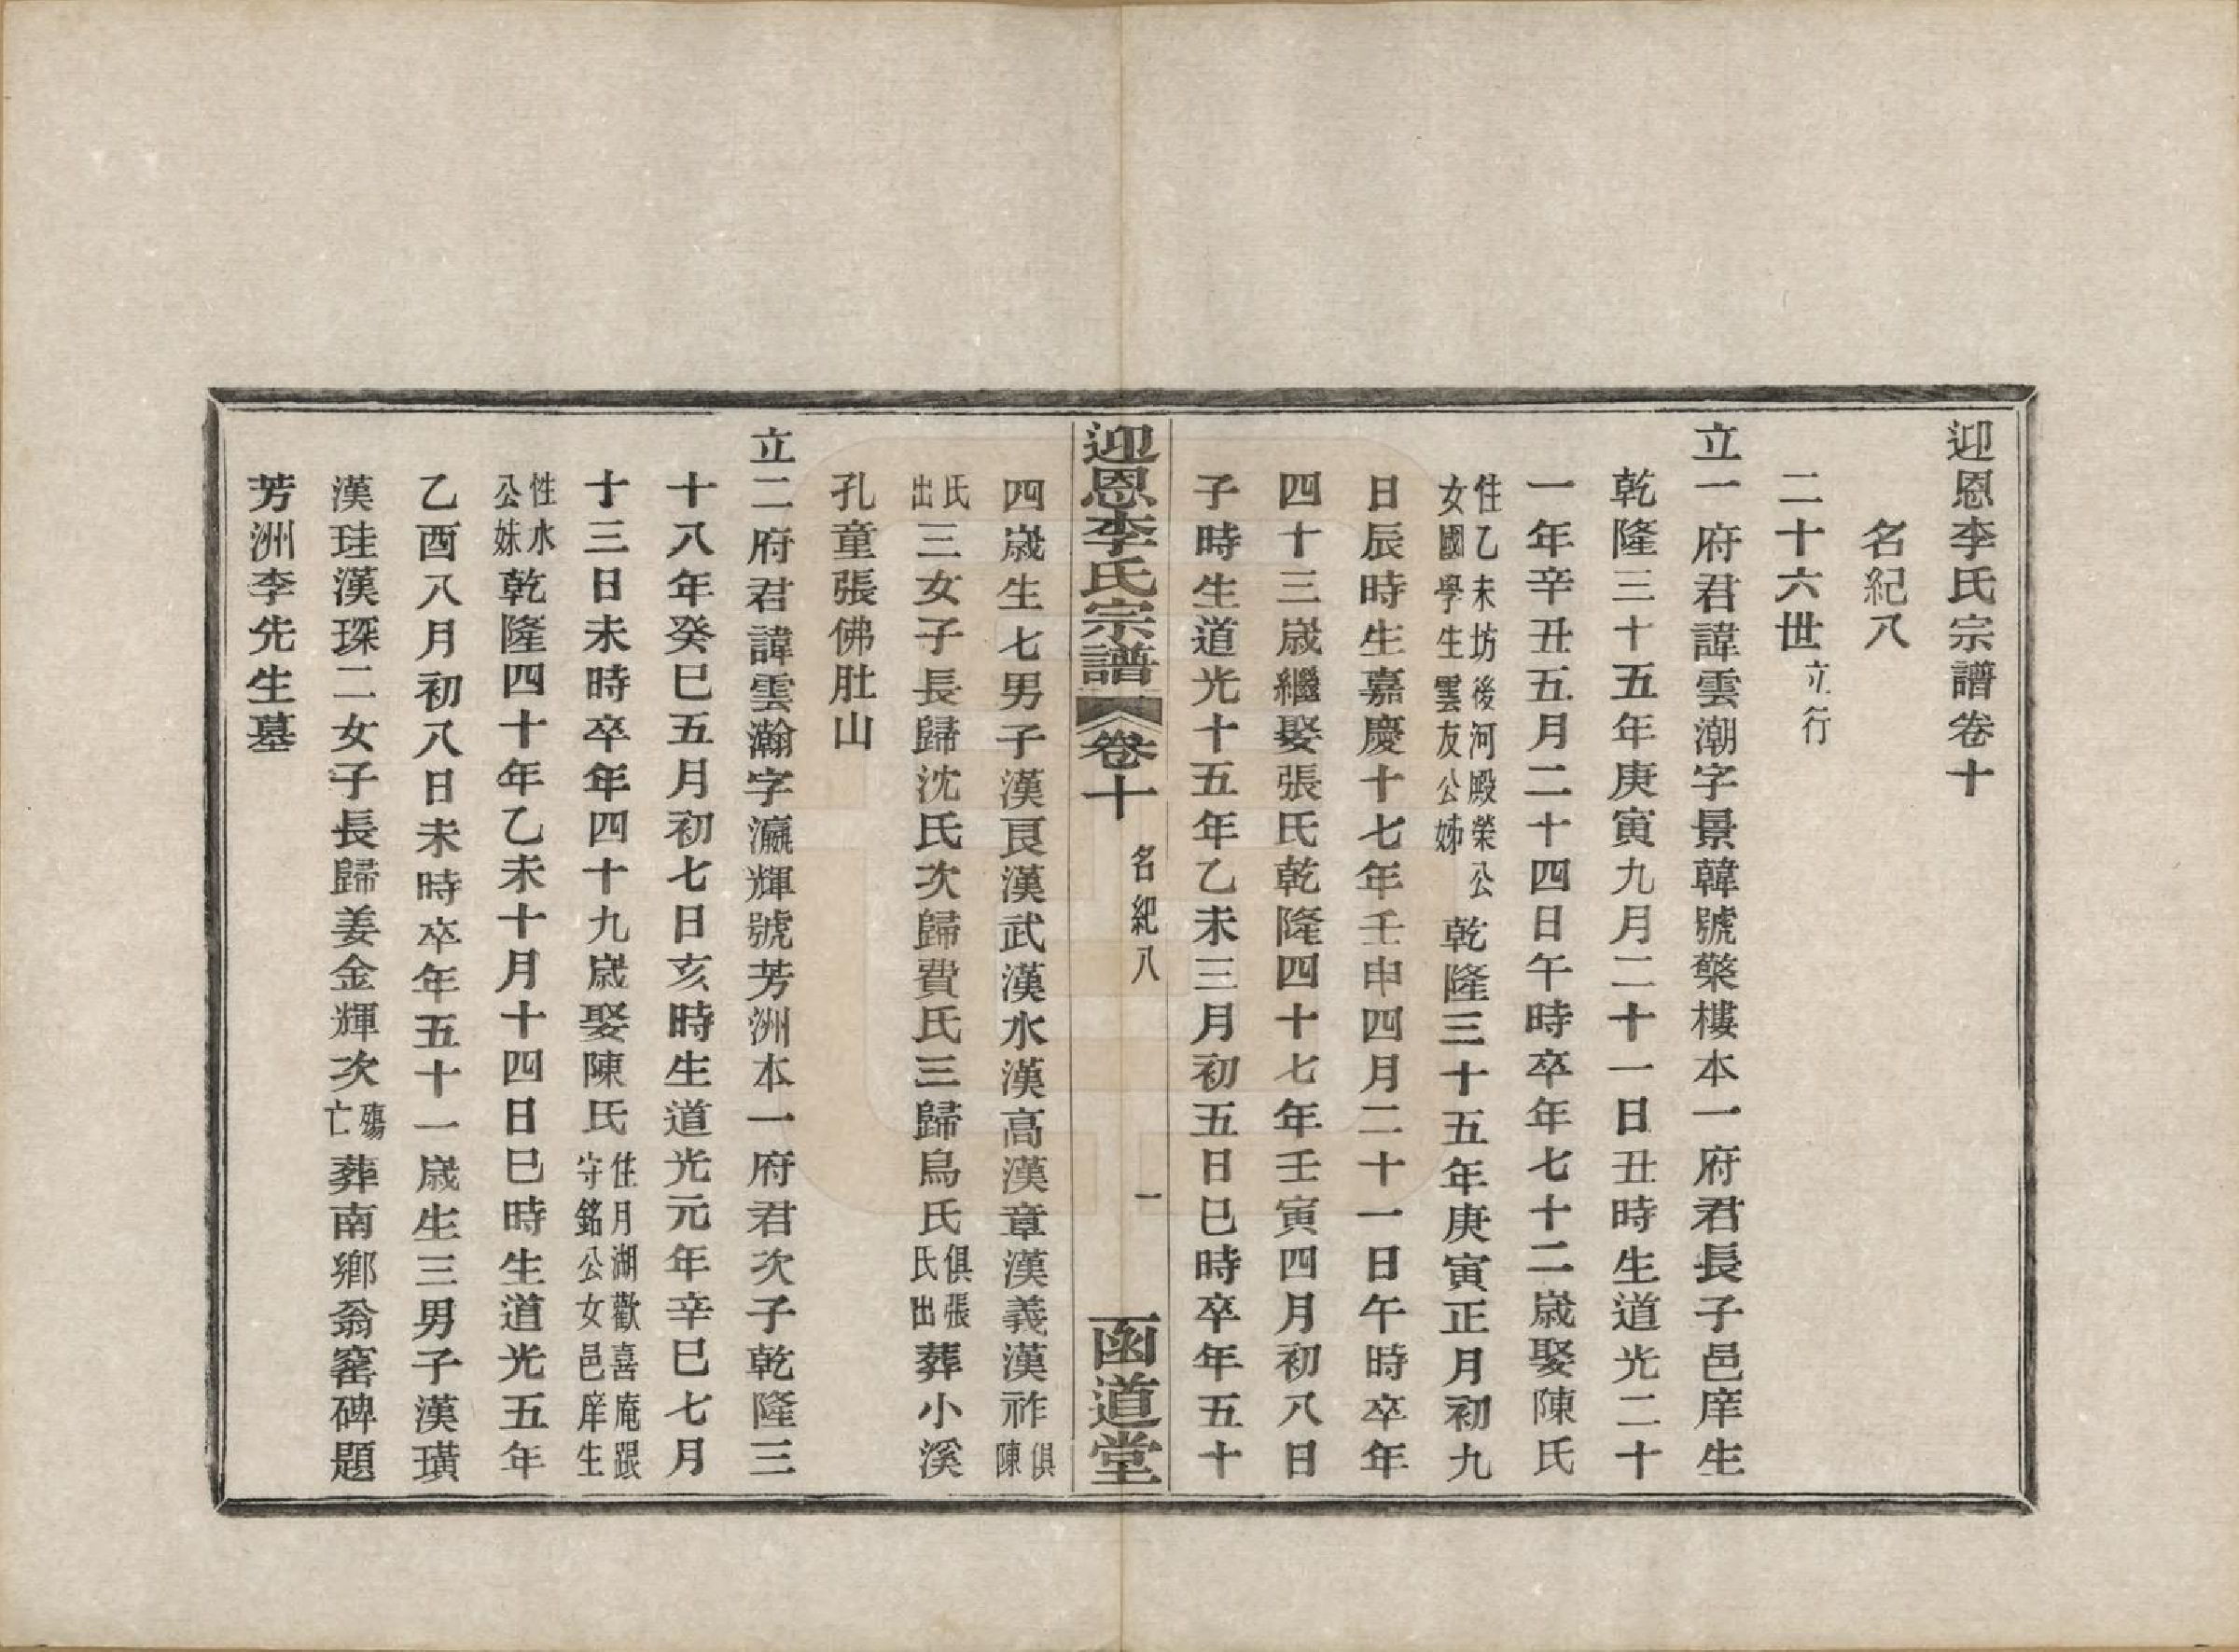 迎恩李氏宗譜卷十
名紀八
二十六世立行
立一府君諱雲潮字景韓號檠樓本一府君長子邑庠生
乾隆三十五年庚寅九月二十一日丑時生道光二十
一年辛丑五月二十四日午時卒年七十二歲娶陳氏
住乙未坊後河殿榮公
女國學生雲友公姊
乾隆三十五年庚寅正月初九
日辰時生嘉慶十七年壬申四月二十一日午時卒年
四十三歲繼娶張氏乾隆四十七年壬寅四月初八日
子時生道光十五年乙未三月初五日巳時卒年五十
迎恩李氏宗譜 卷十 名紀八 一 函道堂
四歲生七男子漢艮漢武漢水漢高漢章漢義漢祚俱陳
氏出三女子長歸沈氏次歸費氏三歸烏氏俱張氏出葬小溪
孔童張佛肚山
立二府君諱雲瀚字瀛輝號芳洲本一府君次子乾隆三
十八年癸巳五月初七日亥時生道光元年辛巳七月
十三日未時卒年四十九歲娶陳氏
住月湖歡喜庵跟
守銘公女邑庠生
性水公妹乾隆四十年乙未十月十四日巳時生道光五年
乙酉八月初八日未時卒年五十一歲生三男子漢璜
漢珪漢琛二女子長歸姜金輝次殤亡葬南鄉翁窰碑題
芳洲李先生墓